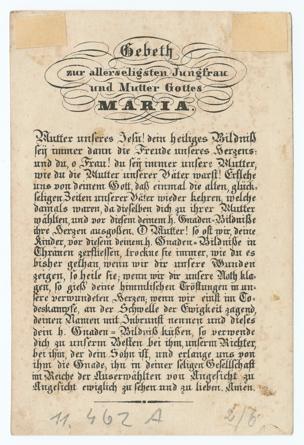 Gebeth
zur allerseligsten Jungfrau
und Mutter Gottes
MARIA.
Mutter unseres Jesu! dein heiliges Bildniß
sey immer dann die Freude unseres Herzens:
und du, o Frau! du sey immer unsere Mutter,
wie du die Mutter unserer Väter warst! Erflehe
uns von deinem Gott, daß einmal die alten, glück-
seligen Zeiten unserer Väter wieder kehren, welche
damals waren, da dieselben dich zu ihrer Mutter
wählten, und vor diesem deinem h. Gnaden-Bildniße
ihr Herzen ausgoßen. O Mutter! so oft wir, deine
Kinder, vor diesem deinem h. Gnaden-Bildniße in
Thränen zerfliessen, trockne sie immer, wie du es
bisher gethan, wenn wir dir unsere Wunden
zeigen, so heile sie; wenn wir dir unsere Noth kla-
gen, so gieß deine himmlischen Tröstungen in un-
sere verwundeten Herzen; wenn wir einst im To-
deskampfe, an der Schwelle der Ewigkeit zagend,
deinen Namen mit Inbrunst nennen und dieses
dein h. Gnaden-Bildniß küßen, so verwende
dich zu unserm Besten bei ihm, unserm Richter,
bei ihm, der dein Sohn ist, und erlange uns von
ihm die Gnade, ihn in deiner seligen Gesellschaft
im Reiche der Auserwählten von Angesicht zu
Angesicht ewiglich zu sehen und zu lieben. Amen.
11,462 A